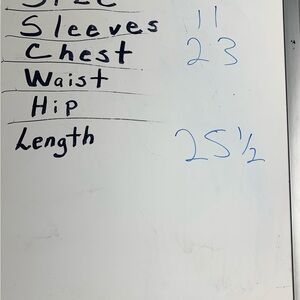 Size
Sleeves 11
Chest 23
Waist
Hip
Length 25 1/2